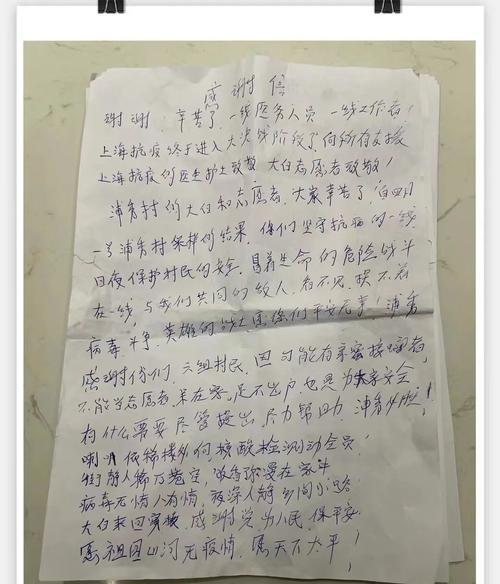 感谢信
谢谢 辛苦了 一线医务人员 一线工作者！
上海抗疫终于进入大决战阶段了向所有支援
上海抗疫的医生护士致敬 大白志愿者致敬！
浦秀村的大白和志愿者，大家辛苦了，自四月
一号浦秀村采样的结果，你们坚守抗疫的一线
日夜保护村民的安全，冒着生命的危险战斗
在一线，与我们共同的敌人，看不见，摸不着
病毒斗争，英雄的战士愿你们平安无事！浦秀
感谢你们，六组村民，因可能有亲密接触者，
不能当志愿者 呆在家，足不出户也是为大家安全
有什么需要尽管提出 尽力帮助，浦秀加油！
喇叭依稀楼外何 核酸检测动全员！
街静人稀万巷空，
病毒无情人有情 夜深人静乡间小路
大白来回 感谢党为人民 保平安
愿祖国山河无疫情，愿天下太平！